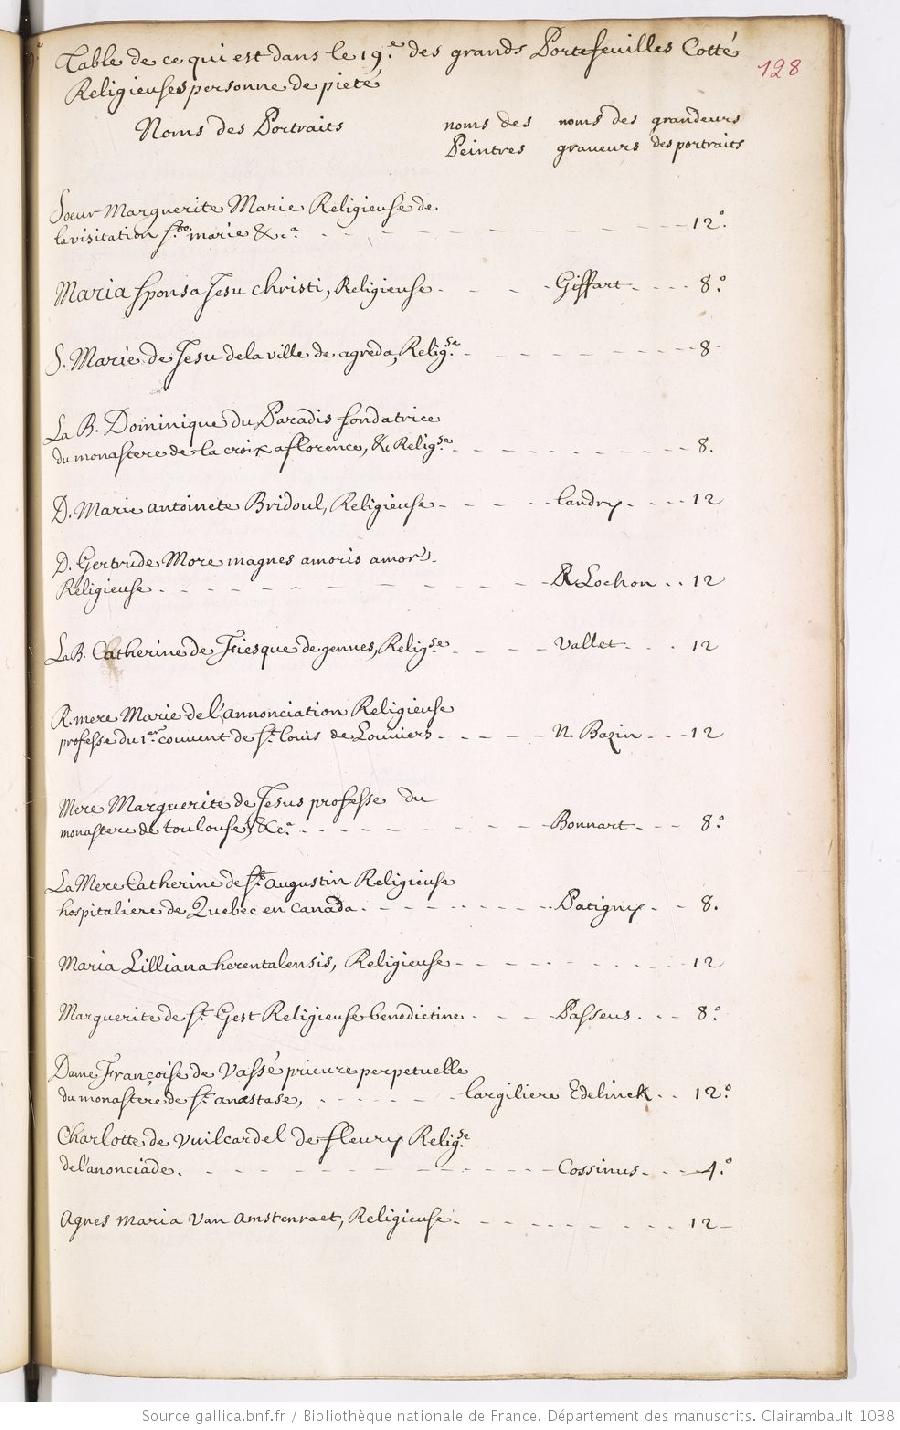 Table de ce qui est dans le 19.e des grands Portefeuilles Cotté
128
Religieuses personne de pieté
Noms des Portraits noms des noms des grandeurs
Peintres graueurs des portraits
Soeur Marguerite Marie Religieuse de
la visitation Ste marie &c.a 12.o
Maria sponsa Jesu christi, Religieuse Giffart 8.o
S. Marie de Jesu de la ville de agreda, Religse. 8
La B. Dominique du Paradis fondatrice
du monastere de la croix a florence, & Religse. 8.
D. Marie antoinete Bridoul, Religieuse Landry 12
D. Gertrude More magnes amoris amor
Religieuse R. Lochon 12
La B. Catherine de Fiesque de gennes, Religse Vallet 12
R. mere Marie de l'annonciation Religieuse
professe du 1.er couuent de St. louis de Louuiers N. Bazin 12
Mere Marguerite de Jesus professe du
monastere de toulouse, &c.a Bonnart 8.o
La Mere Catherine de St. augustin Religieuse
hospitaliere de Quebec en canada Patigny 8.
Maria Lilliana herentalensis, Religieuse 12
Marguerite de St. Gest Religieuse benedictine Passeus 8.o
Dame Françoise de Vassé prieure perpetuelle
du monastere de St. anastase, largiliere Edelinck 12.o
Charlotte de Vuilcardel de fleury Religse.
de l'anonciade. Cossinus 4.o
Agnes maria Van amstenraet, Religieuse 12
Source gallica.bnf.fr / Bibliothèque nationale de France. Département des manuscrits. Clairambault 1038